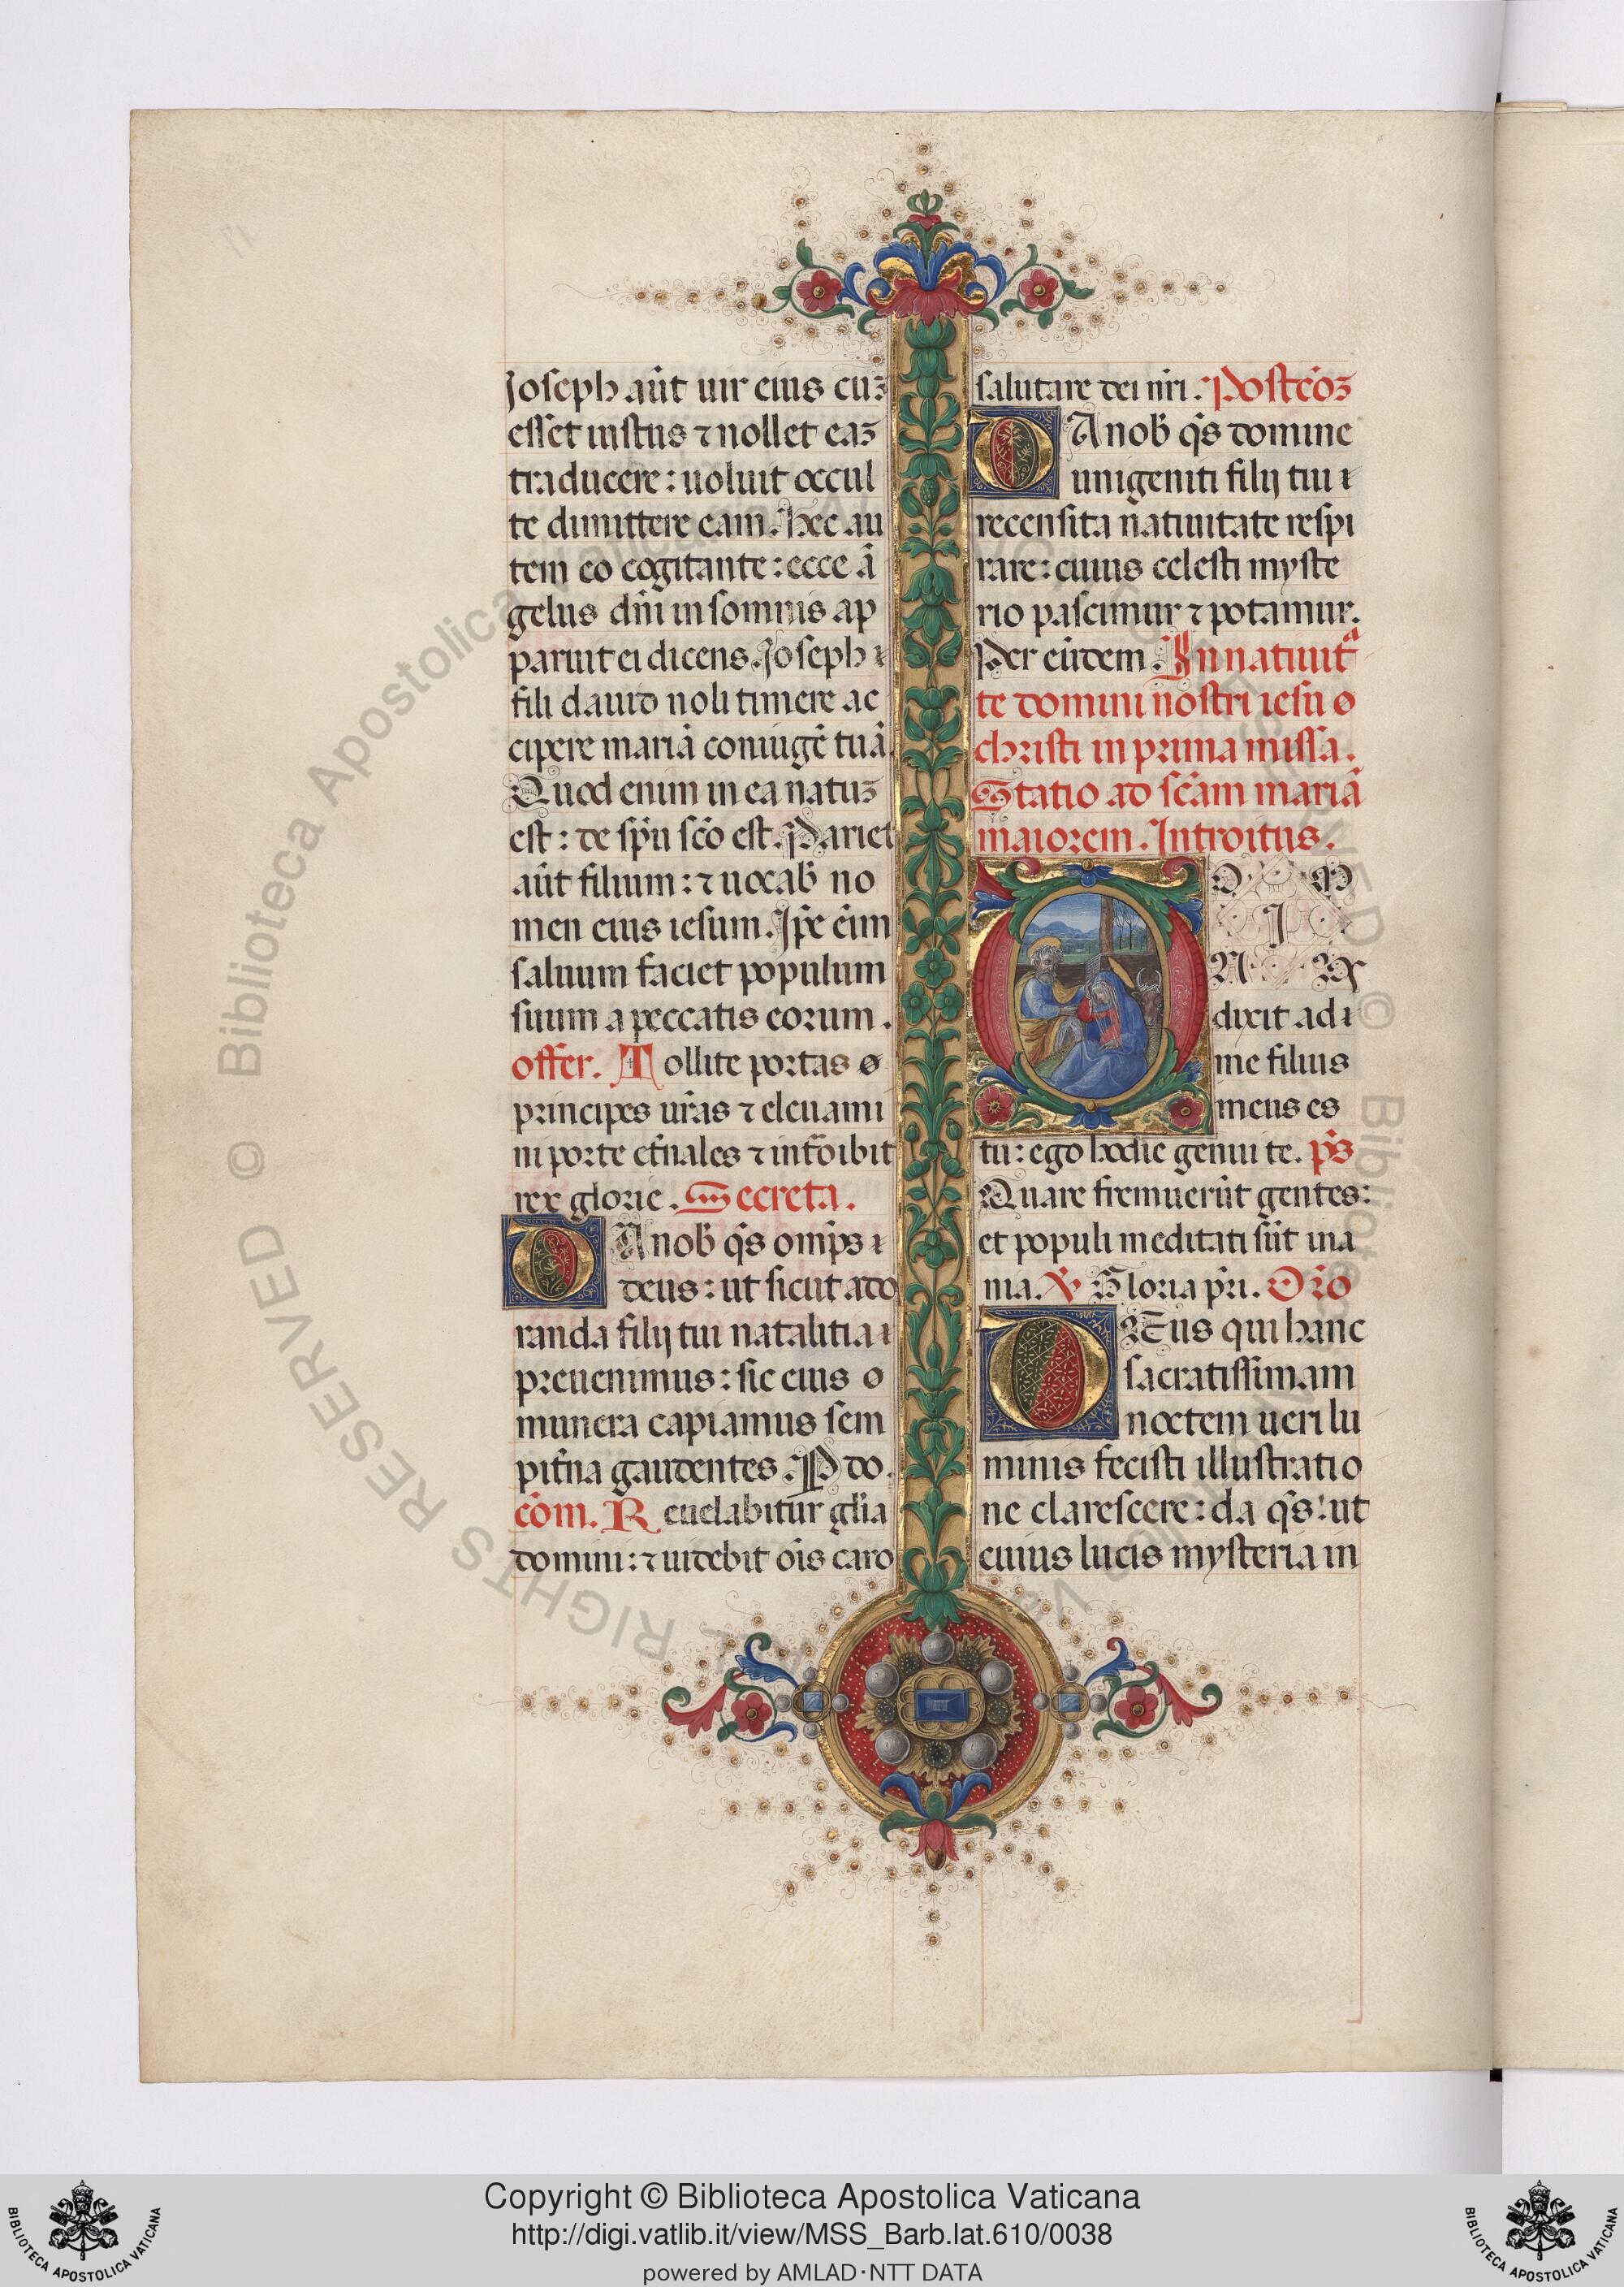 Joseph aūt uir eius cuʒ
esset iustus ⁊ nollet eaʒ
traducere: uoluit occul
te dimittere eam. Hec au
tem eo cogitante: ecce ā
gelus dn̄i in somnis ap
paruit ei dicens. Joseph
fili dauid noli timere ac
cipere mariā coniugē tuā.
Quod enim in ea natuʒ
est: de spū scō est. Pariet
aūt filium: ⁊ uocab̄ no
men eius iesum. Ip̄e eim̄
saluum faciet populum
suum a peccatis eorum.
offer. Tollite portas
principes ur̄as ⁊ eleuami
ni porte et̄nales ⁊ int̄oibit
rex glorie. Secreta.
DA nob̄ q̄s omp̄s
deus: ut sicut ado
randa filij tui natalitia
preuenimus: sic eius
munera capiamus sem
pit̄na gaudentes. P do.
cōm. Reuelabitur gl̄ia
domini: ⁊ uidebit oīs caro
salutare dei nr̄i. Postcōʒ
DA nob̄ q̄s domine
unigeniti filij tui
recensita natiuitate respi
rare: cuius celesti myste
rio pascimur ⁊ potamur.
Per eūdem. In natiuita
te domini nostri iesu
christi in prima missa.
Statio ad scām mariā
maiorem. Introitus.
DOM
I
NUS
dixit ad
me filius
meus es
tu: ego hodie genui te. p̄s
Quare fremuerūt gentes:
et populi meditati sūt ina
nia. ℣ Gloria pr̄i. Or̄o
DEus qui hanc
sacratissimam
noctem ueri lu
minis fecisti illustratio
ne clarescere: da q̄s: ut
cuius lucis mysteria in
© Biblioteca Apostolica Vaticana
ALL RIGHTS RESERVED
Copyright © Biblioteca Apostolica Vaticana
http://digi.vatlib.it/view/MSS_Barb.lat.610/0038
powered by AMLAD·NTT DATA
BIBLIOTECA APOSTOLICA VATICANA
BIBLIOTECA APOSTOLICA VATICANA